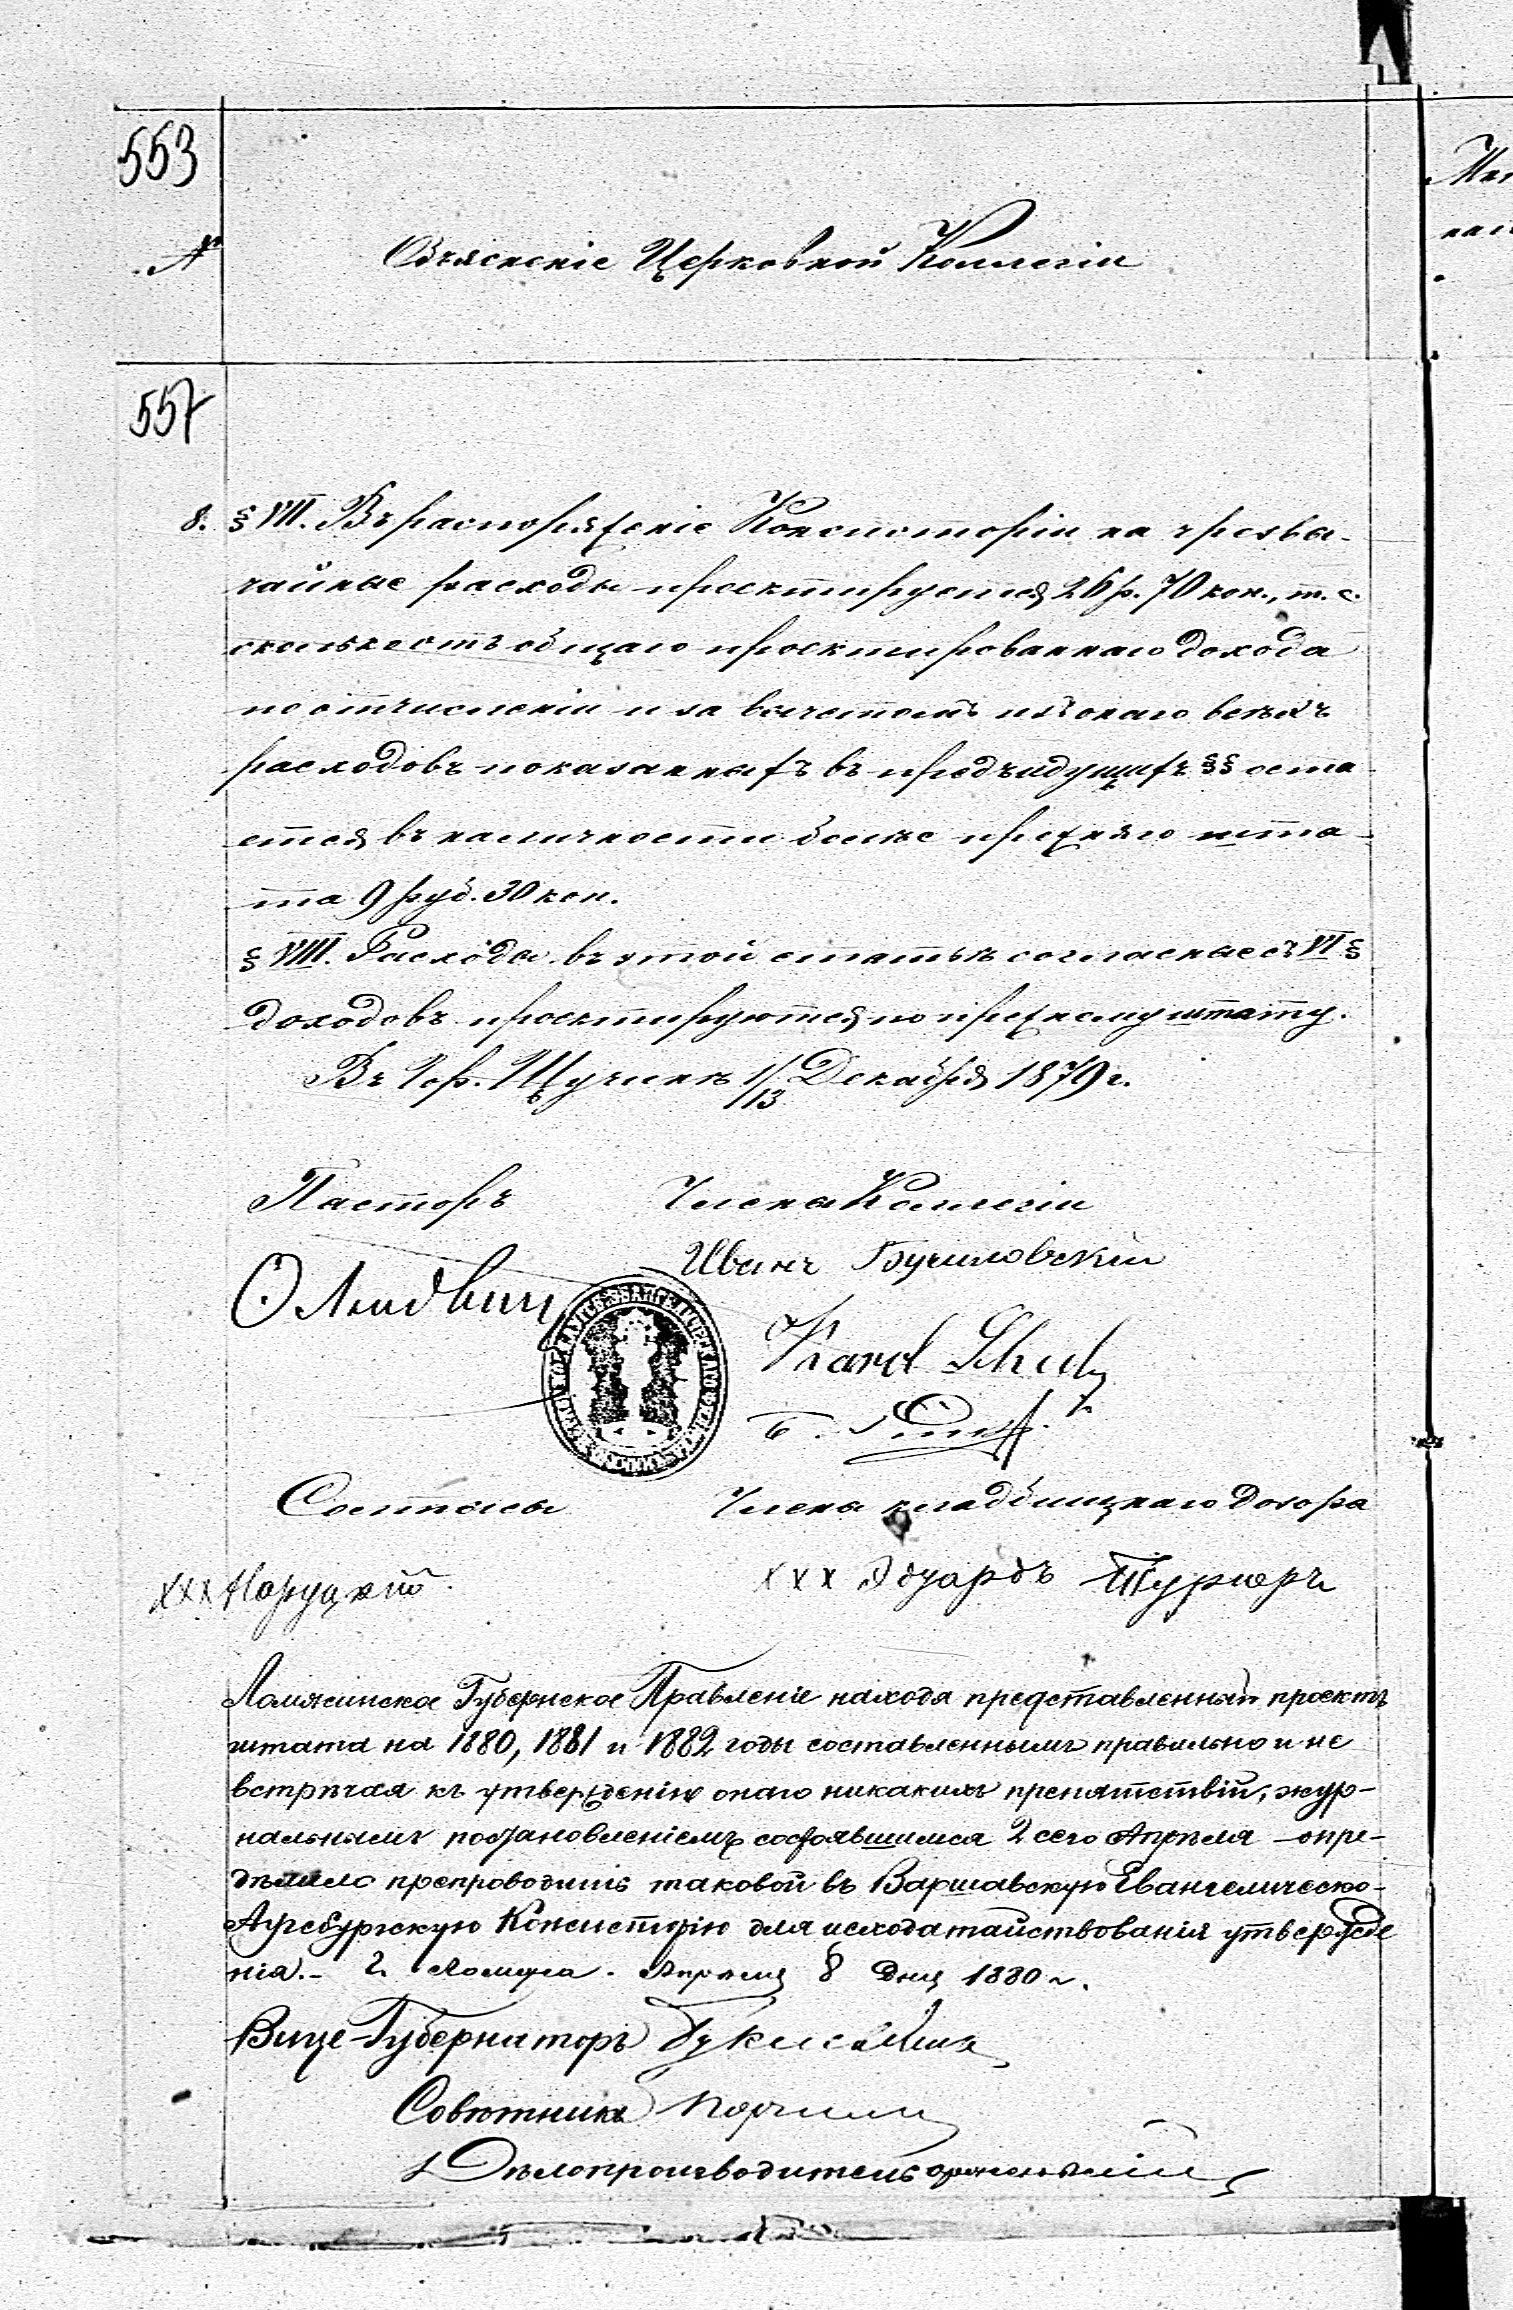 553
№
Объясненіе Церковной Коллегіи
557
8. § VII. Въ распоряженіе Консисторіи на чрезвы-
чайные расходы проектируется 26 р. 70 коп., т. е.
сколько отъ общаго проектированнаго дохода
по отчисленіи и за вычетомъ изъ онаго всѣхъ
расходовъ показанныхъ въ предъидущихъ §§ оста-
ется въ наличности болѣе прежняго шта-
та 9 руб. 30 коп.
§ VIII. Расходы въ этой статьѣ согласные съ VI §
доходовъ проектируются по прежнему штату.
Въ Гор. Щучинѣ 1/13 Декабря 1879 г.
Пасторъ Члены Коллегіи
Иванъ
Karol
Члены кладбищнаго Дозора
XXX XXX Эдуардъ
Ломжинское Губернское Правленіе находя представленный проектъ
штата на 1880, 1881 и 1882 годы составленнымъ правильно и не
встрѣчая къ утвержденію онаго никакихъ препятствій, жур-
нальнымъ постановленіемъ состоявшимся 2 сего Апрѣля – опре-
дѣлило препроводить таковой въ Варшавскую Евангелическо-
Аугсбургскую Консисторію для исходатайствованія утвержде
нія.– г. Ломжа. Апрѣля 8 дня 1880 г.
Вице-Губернаторъ
Совѣтникъ
Дѣлопроизводитель